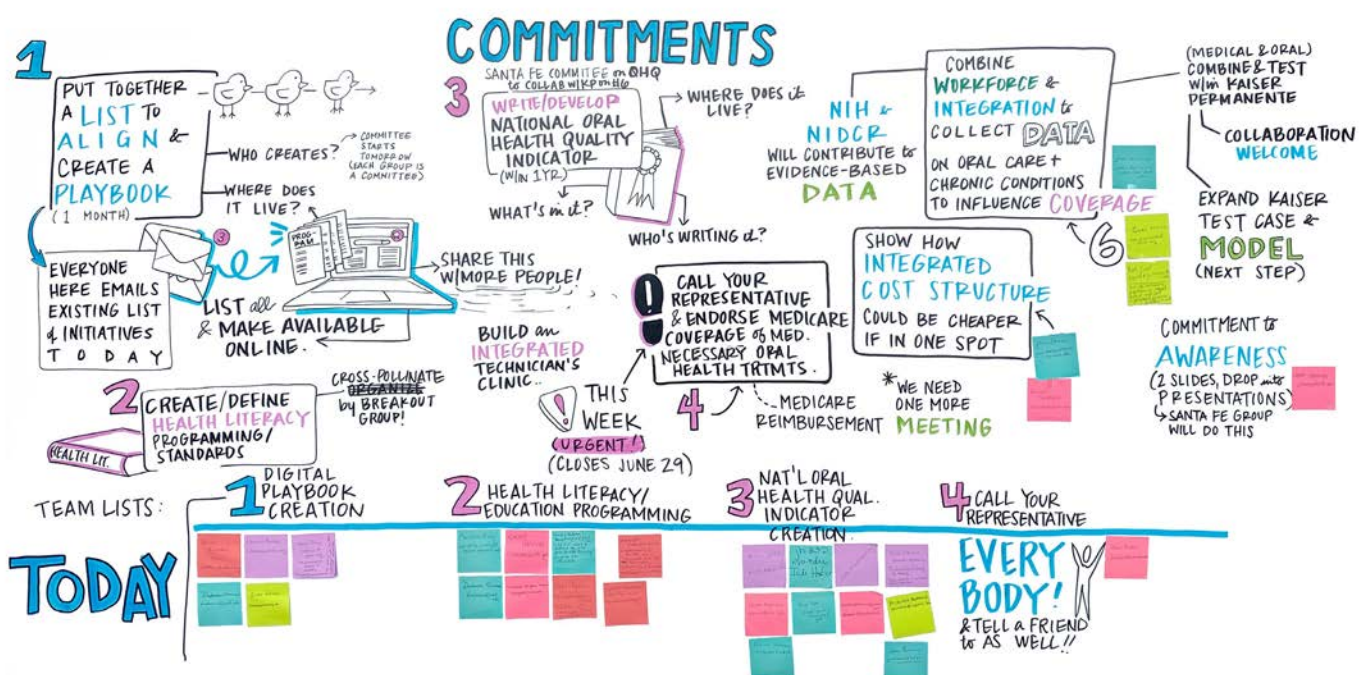 COMMITMENTS
1
PUT TOGETHER
A LIST TO
ALIGN &
CREATE A
PLAYBOOK
(1 MONTH)
WHO CREATES?
COMMITTEE
STARTS
TOMORROW
(EACH GROUP IS
A COMMITTEE)
WHERE DOES
IT LIVE?
EVERYONE
HERE EMAILS
EXISTING LIST
of INITIATIVES
TODAY
3
PROG-
RAM
LIST all
& MAKE AVAILABLE
ONLINE.
SHARE THIS
W/MORE PEOPLE!
2
CREATE/DEFINE
HEALTH LITERACY
PROGRAMMING/
STANDARDS
HEALTH LIT.
CROSS-POLLINATE
ORGANIZE
by BREAKOUT
GROUP!
3
SANTA FE COMMITEE on OHQ
to COLLAB W/KP on #6
WRITE/DEVELOP
NATIONAL ORAL
HEALTH QUALITY
INDICATOR
(W/IN 1YR.)
WHERE DOES it
LIVE?
WHAT'S in it?
WHO'S WRITING it?
BUILD an
INTEGRATED
TECHNICIAN'S
CLINIC..
! THIS
WEEK
(URGENT!)
(CLOSES JUNE 29)
!
CALL YOUR
REPRESENTATIVE
& ENDORSE MEDICARE
COVERAGE of MED.
NECESSARY ORAL
HEALTH TRTMTS.
4
MEDICARE
REIMBURSEMENT
NIH &
NIDCR
WILL CONTRIBUTE to
EVIDENCE-BASED
DATA
COMBINE
WORKFORCE &
INTEGRATION to
COLLECT DATA
ON ORAL CARE +
CHRONIC CONDITIONS
TO INFLUENCE COVERAGE
6
(MEDICAL & ORAL)
COMBINE & TEST
W/in KAISER
PERMANENTE
COLLABORATION
WELCOME
EXPAND KAISER
TEST CASE &
MODEL
(NEXT STEP)
SHOW HOW
INTEGRATED
COST STRUCTURE
COULD BE CHEAPER
IF IN ONE SPOT
*WE NEED
ONE MORE
MEETING
COMMITMENT to
AWARENESS
(2 SLIDES, DROP into
PRESENTATIONS)
SANTA FE GROUP
WILL DO THIS
TEAM LISTS:
TODAY
1 DIGITAL
PLAYBOOK
CREATION
2 HEALTH LITERACY/
EDUCATION PROGRAMMING
3 NAT'L ORAL
HEALTH QUAL.
INDICATOR
CREATION
4 CALL YOUR
REPRESENTATIVE
EVERY
BODY!
& TELL a FRIEND
to AS WELL!!